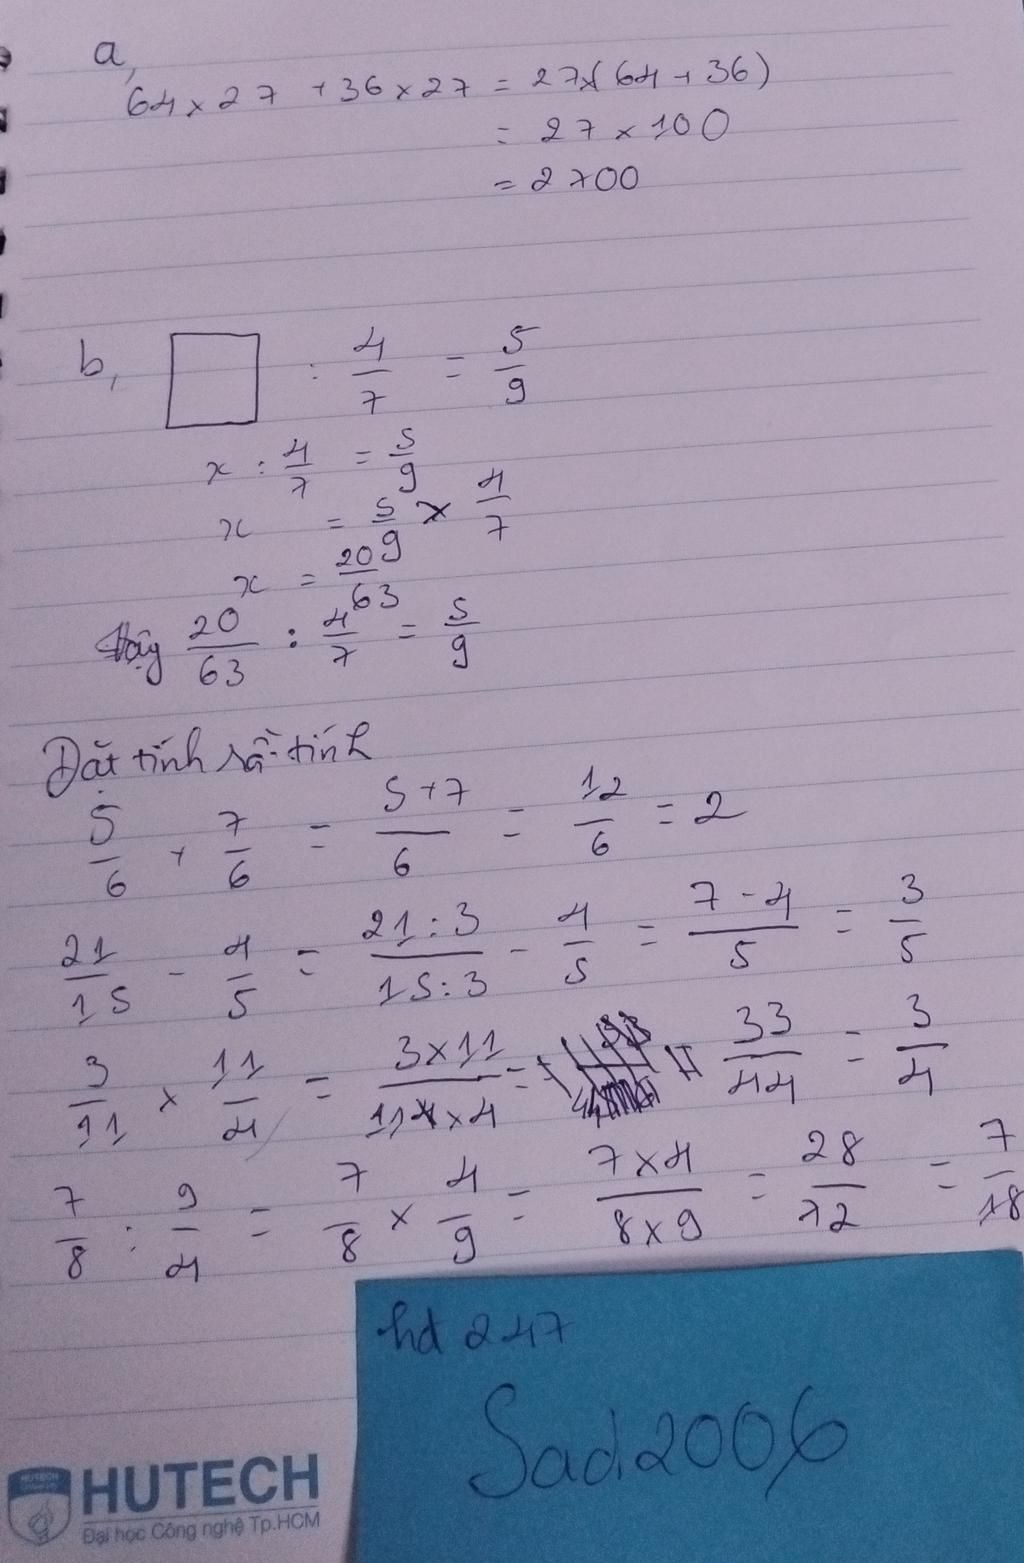 a,
64 × 27 + 36 × 27 = 27 × (64 + 36)
= 27 × 100
= 2700
b, □ : 4/7 = 5/9
x : 4/7 = 5/9
x = 5/9 × 4/7
x = 20/63
Vậy 20/63 : 4/7 = 5/9
Đặt tính rồi tính
5/6 + 7/6 = (5+7)/6 = 12/6 = 2
21/15 - 4/5 = (21:3)/(15:3) - 4/5 = (7-4)/5 = 3/5
3/11 × 11/4 = (3×11)/(11×4) = 33/44 = 3/4
7/8 : 9/4 = 7/8 × 4/9 = (7×4)/(8×9) = 28/72 = 7/18
hd 247
Sad2006
HUTECH
HUTECH
Đại học Công nghệ Tp.HCM